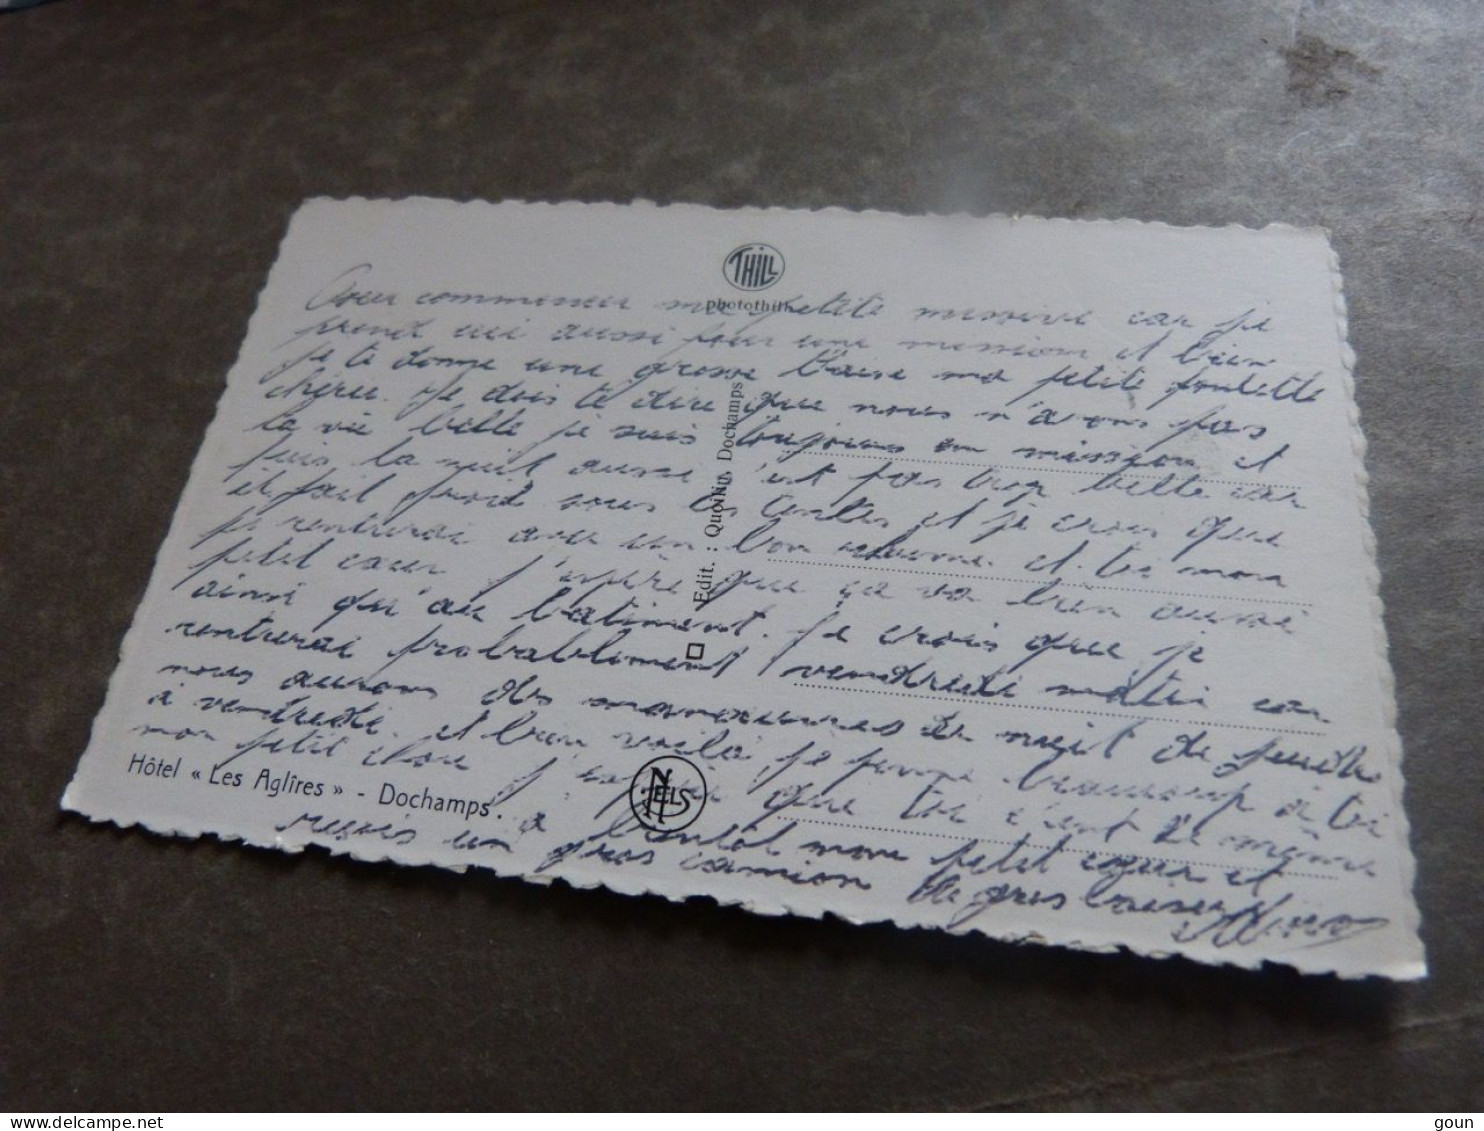 THILL
photothill
Pour commencer ma petite missive car je
prend ici aussi pour une mission et bien
je te donne une grosse baise ma petite
chérie. Je dois te dire que nous n'avons pas
la vie belle je suis toujours en mission et
puis la nuit aussi c'est pas trop belle car
il fait froid sous les tentes et je crois que
je rentrerai avec un bon rhume. et toi mon
petit cœur j'espère que ça va bien aussi
ainsi qu'au batiment. Je crois que je
rentrerai probablement vendredi matin car
nous aurons des manoeuvres de nuit de jeudi
à vendredi. et bien voilà je pense beaucoup à toi
mon petit chou j'espère que toi c'est de même
à bientôt mon petit cœur et
reçois un gros camion de gros baisers
Edit. : Quoilin, Dochamps
Hôtel « Les Aglîres » - Dochamps.
NELS
delcampe.net
goun